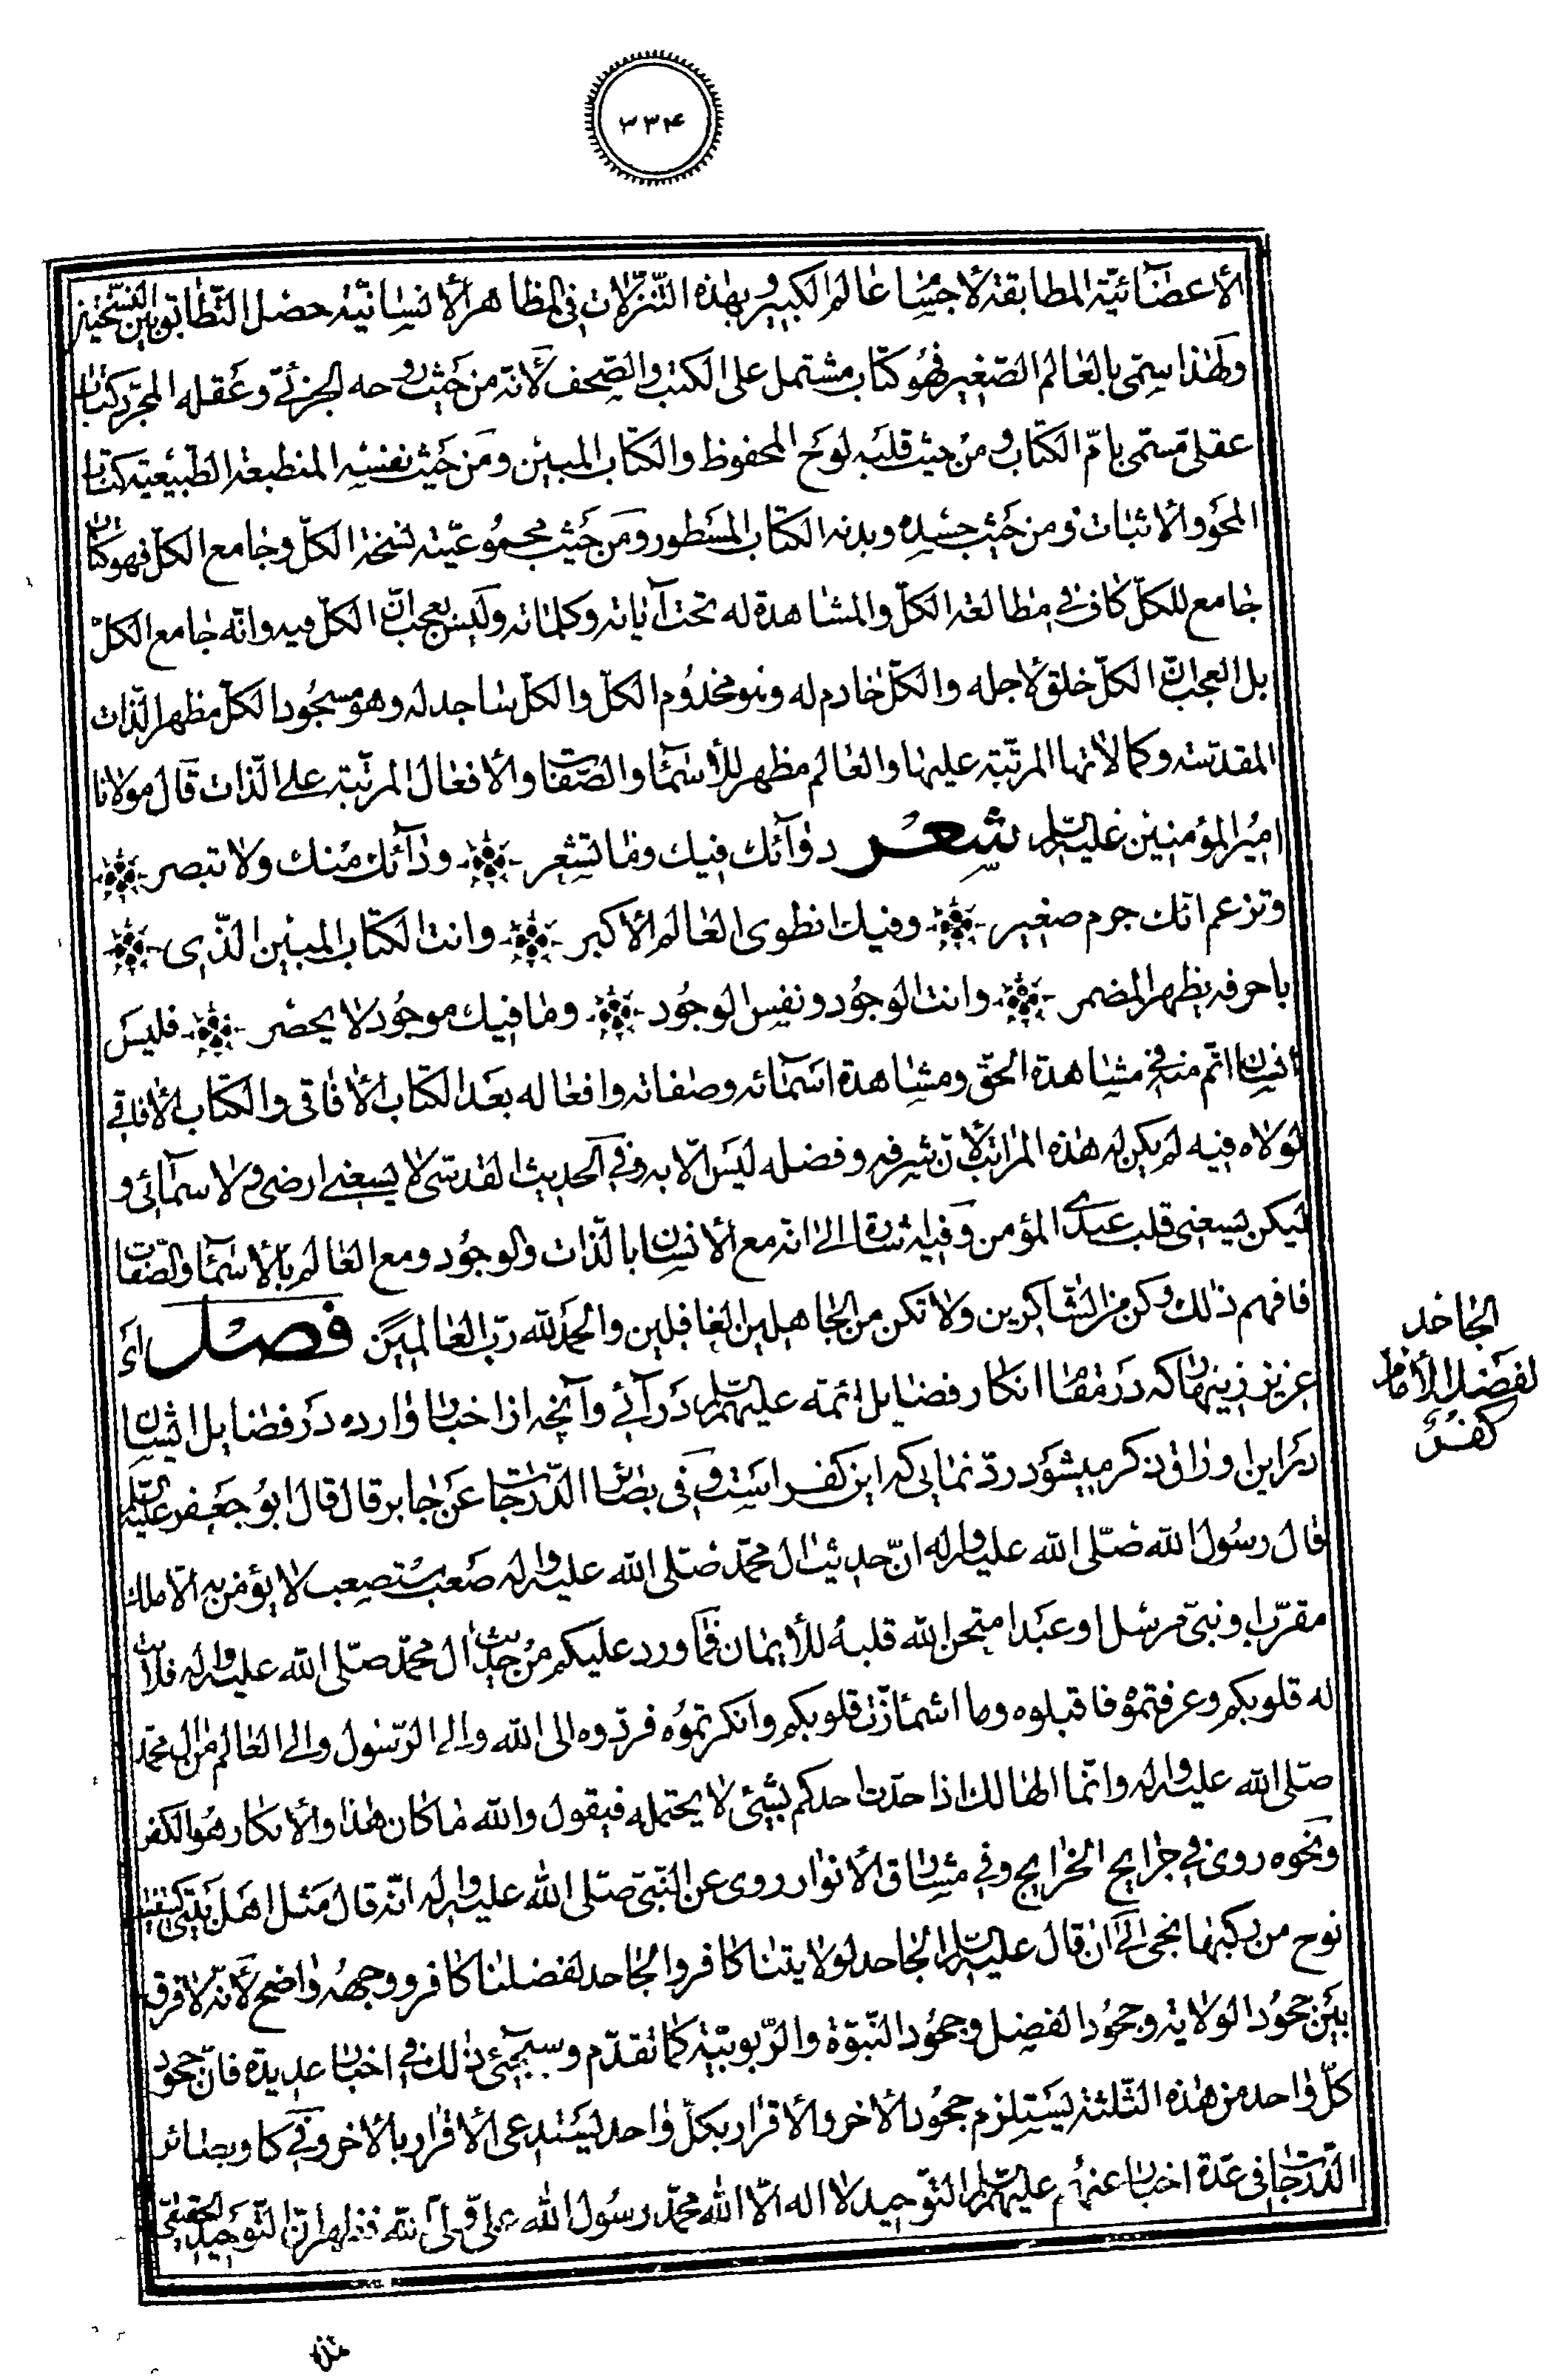 ۳۳۴
الأعضائیّة المطابقة لأجسا عالم الکبیر وبهذه التنزّلات فی المظاهر الأنسانیّة حصل التّطابق بین النسختین
ولهذا سمّی بالعالم الصّغیر فهو کتاب مشتمل علی الکتب والصّحف لأنّه من حیث روحه الجزئیّ وعقله المجرّد کتاب
عقلیّ مسمّی بامّ الکتاب ومن حیث قلبه لوح المحفوظ والکتاب المبین ومن حیث نفسه المنطبعة الطّبیعیّة کتاب
المحو والاثبات ومن حیث جسده وبدنه الکتاب المسطور ومن حیث مجموعیّته نسخة الکلّ وجامع الکلّ فهو کتاب
جامع للکلّ کاف فی مطالعة الکلّ والمشاهدة له تحت آیاته وکلماته ولیس بعجب انّ الکلّ فیه وانّه جامع الکلّ
بل العجب انّ الکلّ خلق لأجله والکلّ خادم له وهو مخدوم الکلّ والکلّ ساجد له وهو مسجود الکلّ مظهر الذّات
المقدّسة وکمالاتها المرتّبة علیها والعالم مظهر للأسمآء والصّفات والأفعال المرتّبة علی الذّات قال مولانا
امیر المؤمنین علیه السّلم شعر دوآئک فیک وما تشعر ودآئک منک ولا تبصر
وتزعم انّک جرم صغیر وفیک انطوی العالم الأکبر وانت الکتاب المبین الّذی
باحرفه یظهر المضمر وانت الوجود ونفس الوجود وما فیک موجود لا یحضر فلیس
انسان اتّم منه فی مشاهدة الحقّ ومشاهدة اسمآئه وصفاته وافعاله بعد الکتاب الأفاقی والکتاب الأفاقی
لولاه فیه لم یکن له هذه المراتب لأنّ شرفه وفضله لیس الّا به وفی الحدیث القدسی لا یسعنی ارضی ولا سمآئی و
لیکن یسعنی قلب عبدی المؤمن وفیه اشارة الی انّه مع الأنسان بالذّات والوجود ومع العالم بالأسمآء والصّفات
فافهم ذلک وکن من الشّاکرین ولا تکن من الجاهلین الغافلین والحمد لله ربّ العالمین فصل ای
عزیز زینهار که در مقام انکار فضایل ائمّه علیهم السّلم درآئی وآنچه از اخبار وارده در فضایل ایشان
در این اوراق ذکر میشود ردّ نمایی که این کفر است وفی بصائر الدّرجات عن جابر قال قال ابو جعفر علیه السّلم
قال رسول الله صلّی الله علیه واله انّ حدیث ال محمّد صلّی الله علیه واله صعب مستصعب لا یؤمن به الّا ملک
مقرّب ونبیّ مرسل او عبد امتحن الله قلبه للأیمان فما ورد علیکم من حدیث ال محمّد صلّی الله علیه واله فلانت
له قلوبکم وعرفتموه فاقبلوه وما اشمأزّت قلوبکم وانکرتموه فردّوه الی الله والی الرّسول والی العالم من ال محمّد
صلّی الله علیه واله وانّما الهالک اذا حدّث احدکم بشیئ لا یحتمله فیقول والله ما کان هذا والأنکار هو الکفر
ونحوه روی فی جرایح الخرایج وفی مشارق الأنوار روی عن النّبیّ صلّی الله علیه واله انّه قال مثل اهل بیتی کسفینة
نوح من رکبها نجی الی ان قال علیه السّلم الجاحد لولایتنا کافر والجاحد لفضلنا کافر ووجهه واضح لأنّه لا فرق
بین جحود الولایة وجحود الفضل وجحود النّبوّة والرّبوبیّة کما تقدّم وسیجیئ ذلک فی اخبار عدیدة فانّ جحود
کلّ واحد من هذه الثّلثة یستلزم جحود الأخر والأقرار بکلّ واحد یستدعی الأقرار بالأخر وفی کا وبصائر
الدّرجات فی عدّة اخبار عنهم علیهم السّلم التّوحید لا اله الّا الله محمّد رسول الله علیّ ولیّ الله فظهر انّ التّوحید الحقیقی
الجاحد
لفضل الأمام
کفر